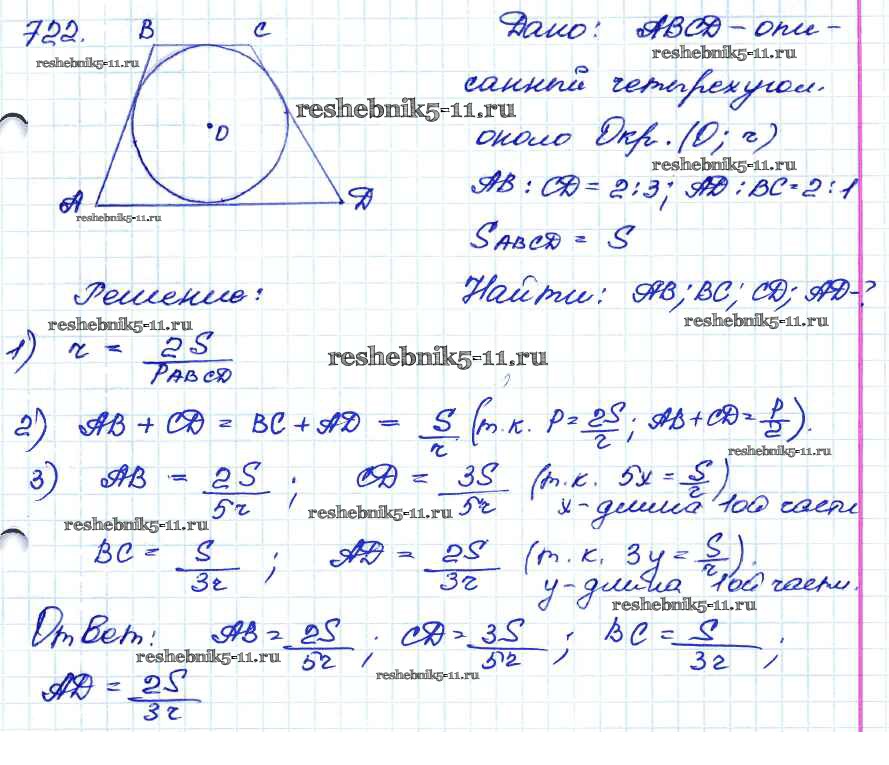 722.
B C
O
A D
Дано: ABCD - опи-
санный четырехугол.
около Окр. (O; r)
AB : CD = 2:3; AD : BC = 2:1
SABCD = S
Найти: AB; BC; CD; AD-?
Решение:
1) r = 2S/PABCD
2) AB + CD = BC + AD = S/r (т.к. P = 2S/r; AB + CD = P/2).
3) AB = 2S/5r; CD = 3S/5r (т.к. 5x = S/r)
x - длина 1ой части
BC = S/3r; AD = 2S/3r (т.к. 3y = S/r).
y - длина 1ой части.
Ответ: AB = 2S/5r; CD = 3S/5r; BC = S/3r;
AD = 2S/3r
reshebnik5-11.ru
reshebnik5-11.ru
reshebnik5-11.ru
reshebnik5-11.ru
reshebnik5-11.ru
reshebnik5-11.ru
reshebnik5-11.ru
reshebnik5-11.ru
reshebnik5-11.ru
reshebnik5-11.ru
reshebnik5-11.ru
reshebnik5-11.ru
reshebnik5-11.ru
reshebnik5-11.ru